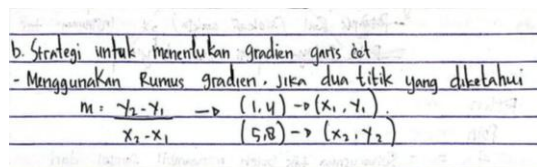 b. Strategi untuk menentukan gradien garis cat
- Menggunakan Rumus gradien. Jika dua titik yang diketahui
m = y₂-y₁ → (1,4) → (x₁, y₁).
x₂-x₁ (5,8) → (x₂, y₂)